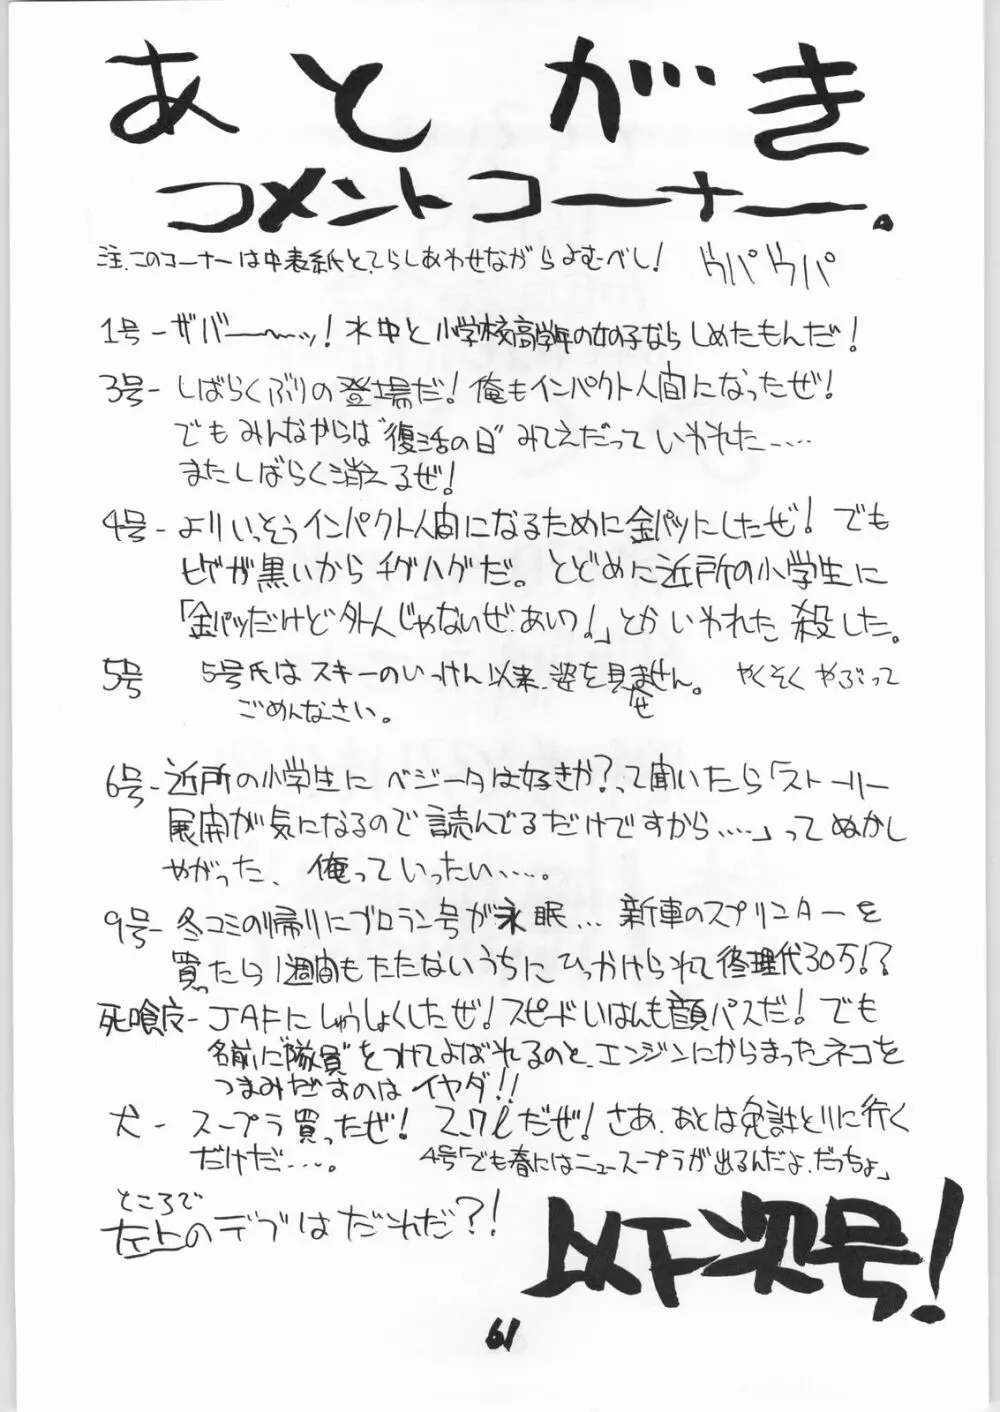 あとがき
コメントコーナー。
注.このコーナーは中表紙と、てらしあわせながらよむべし! ウパウパ
1号-ザバーーッ!水中と小学校高学年の女の子ならしめたもんだ!
3号-しばらくぶりの登場だ!俺もインパクト人間になったぜ!
でもみんなからは“復活の日”みてえだっていわれた‥‥
またしばらく消えるぜ!
4号-よりいっそうインパクト人間になるために金パツにしたぜ!でも
ヒゲが黒いからチグハグだ。とどめに近所の小学生に
「金パツだけど外人じゃないぜ、あいつ!」とかいわれた 殺した。
5号 5号氏はスキーのいっけん以来、姿を見ません。 やくそくやぶって
ませ
ごめんなさい。
6号-近所の小学生にベジータは好きか?って聞いたら「ストーリー
展開が気になるので読んでるだけですから‥‥」ってぬかし
やがった、俺っていったい‥‥。
9号-冬コミの帰りにブロラン号が永眠… 新車のスプリンターを
買ったら1週間もたたないうちにひっかけられて修理代30万!?
死喰皮-JAFにしゅうしょくしたぜ!スピードいはんも顔パスだ!でも
名前に“隊員”をつけてよばれるのと、エンジンにからまったネコを
つまみだすのはイヤダ!!
犬-スープラ買ったぜ!2.7ℓだぜ!さあ、あとは免許とりに行く
だけだ‥‥。 4号「でも春にはニュースープラが出るんだよ、だっちょ」
ところで
左上のデブはだれだ?!
以下次号!
61